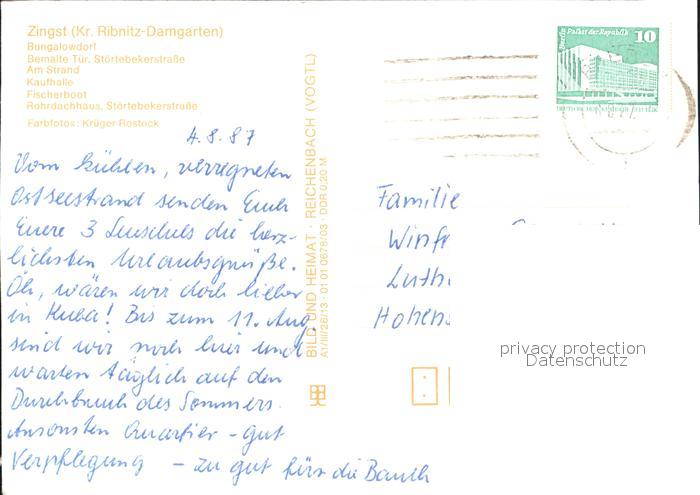 Zingst (Kr. Ribnitz-Damgarten)
Bungalowdorf
Bemalte Tür, Störtebekerstraße
Am Strand
Kaufhalle
Fischerboot
Rohrdachhaus, Störtebekerstraße
Farbfotos: Krüger Rostock
4.8.87
Vom kühlen, verregneten
Ostseestrand senden Euch
Euere 3 die herz-
lichsten Urlaubsgrüße.
Oh, wären wir doch lieber
in Kuba! Bis zum 11. Aug.
sind wir noch hier und
warten täglich auf den
Durchbruch des Sommers.
Ansonsten Quartier – gut
Verpflegung – zu gut fürs die Bauch
BILD UND HEIMAT · REICHENBACH (VOGTL)
A1/III/26/13 · 01 01 0678/03 · DDR 0,20 M
Berlin Palast der Republik
10
Familie
Winfr
Luth
Hohens
privacy protection
Datenschutz